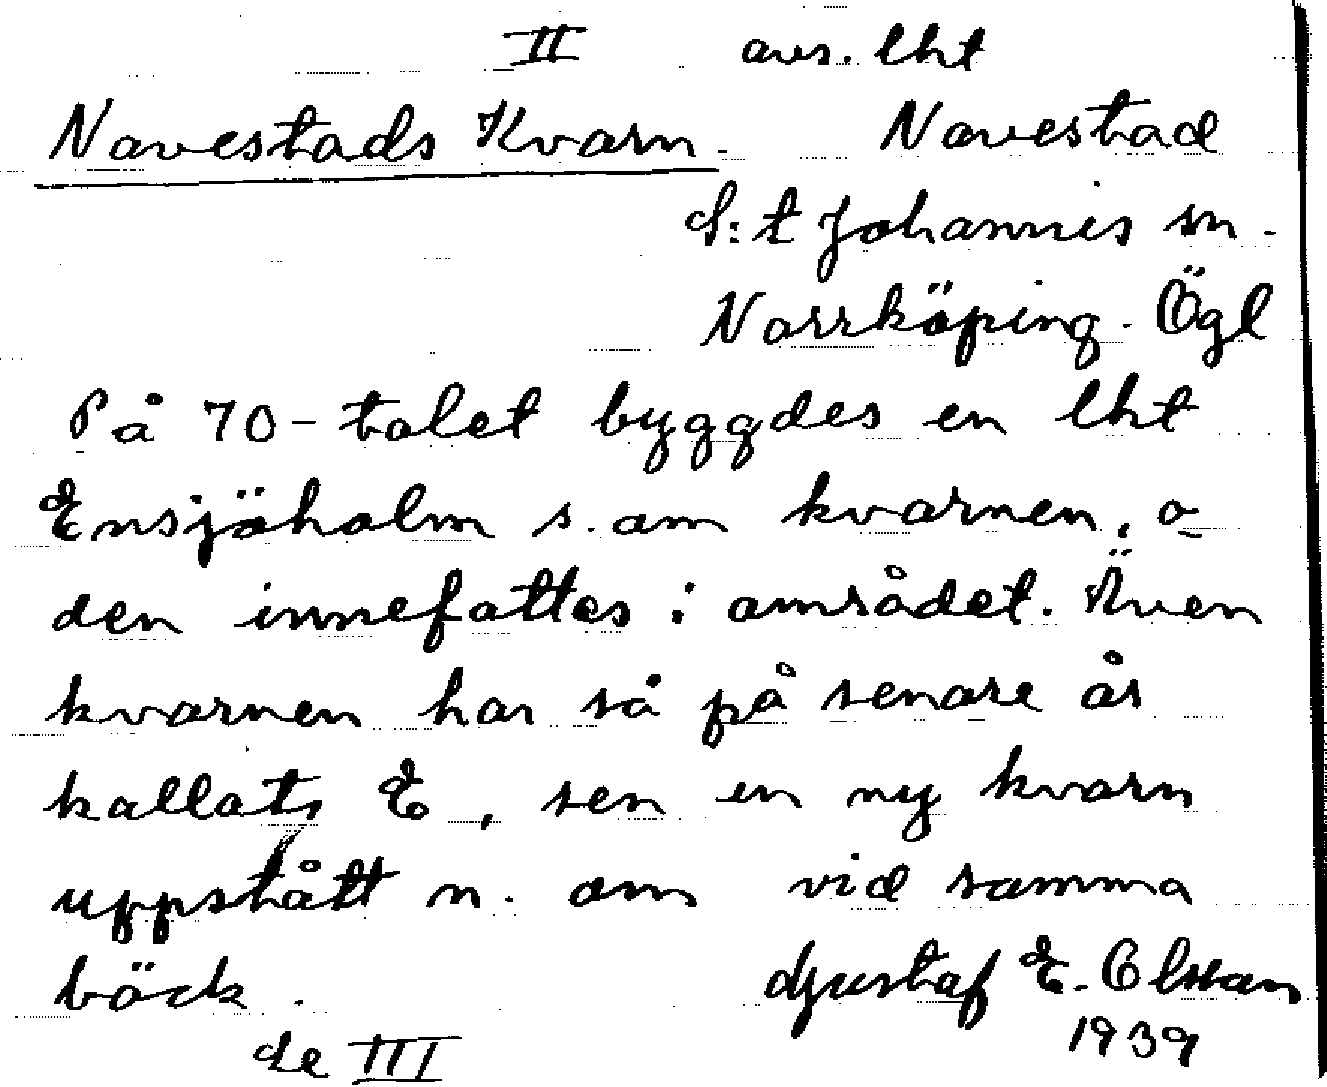 II avs. lht
Navestads Kvarn. Navestad
S:t Johannis sn.
Norrköping. Ögl
På 70-talet byggdes en lht
Ensjöholm s. om kvarnen, o
den innefattes i området. Även
kvarnen har så på senare år
kallats E, sen en ny kvarn
uppstått n. om vid samma
böck.
Gustaf E. Olsson
1939
Se III